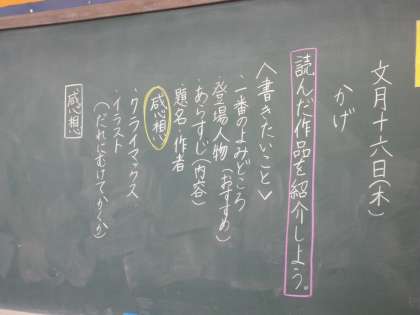 文月十六日(木)
かげ
読んだ作品を紹介しよう。
<書きたいこと>
・一番のよみどころ
・登場人物(おすすめ)
・あらすじ(内容)
・題名・作者
感想
・クライマックス
・イラスト
(だれにむけてかくか)
感想